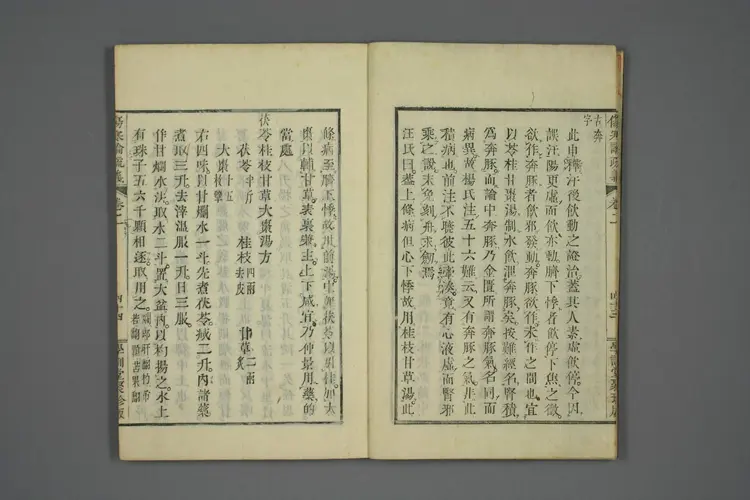 此申釀汗後飲動之證治蓋其人素虛飲停今因
誤汗陽更虛而飲亦動臍下悸者飲停下焦之徵
欲作奔豚者飲邪發動奔豚欲作未作之間也宜
以苓桂甘棗湯制水飲泄奔豚矣按難經名腎積
為奔豚而論中奔豚乃金匱所謂奔豚氣名同而
病異故楊氏注十六難云又有奔豚之氣非此
積病也前注不曉彼此牽湊竟有心液虛而腎邪
乘之說未免刻舟求劍焉
汪氏曰蓋上條病但心下悸故用桂枝甘草湯此
條病至臍下悸故用前藥中加茯苓以用大
棗以輔甘草茯棗主上下咸宜乃仲景用藥的
當處
茯苓桂枝甘草大棗湯方
茯苓半斤 桂枝四兩去皮 甘草二兩炙
大棗十五枚擘
右四味以甘爛水一斗先煮茯苓減二升內諸藥
煮取三升去滓溫服一升日三服
作甘爛水法取水二斗置大盆內以杓揚之水上
有珠子五六千顆相逐取用之
傷寒論疏義
卷二